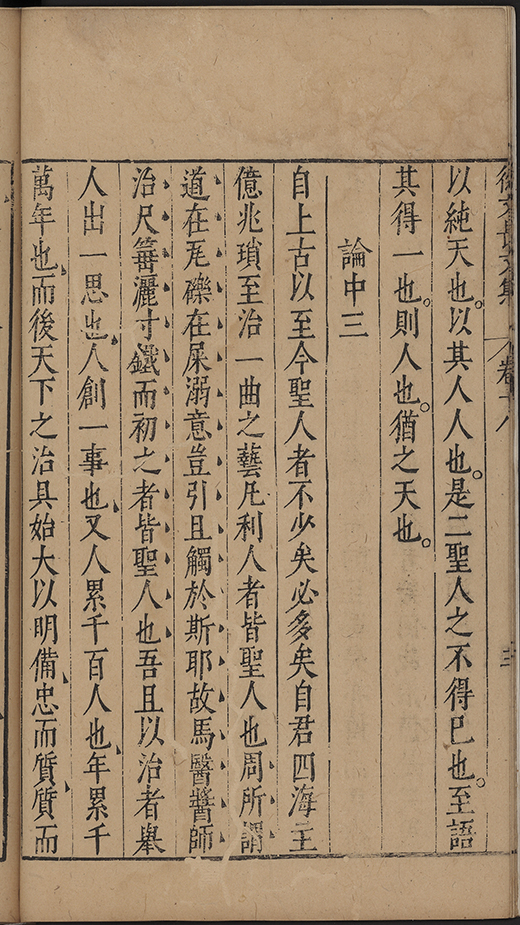 徐文長文集 卷十八 三
以純天也。以其人人也。是二聖人之不得已也。至語
其得一也。則人也。猶之天也。
論中三
自上古以至今聖人者不少矣必多矣自君四海主
億兆瑣至治一曲之藝凡利人者皆聖人也周所謂
道在瓦礫在屎溺意豈引且觸於斯耶故馬醫醬師
治尺箠灑寸鐵而初之者皆聖人也吾且以治者舉
人出一思也人創一事也又人累千百人也年累千
萬年也而後天下之治具始大以明備忠而質質而